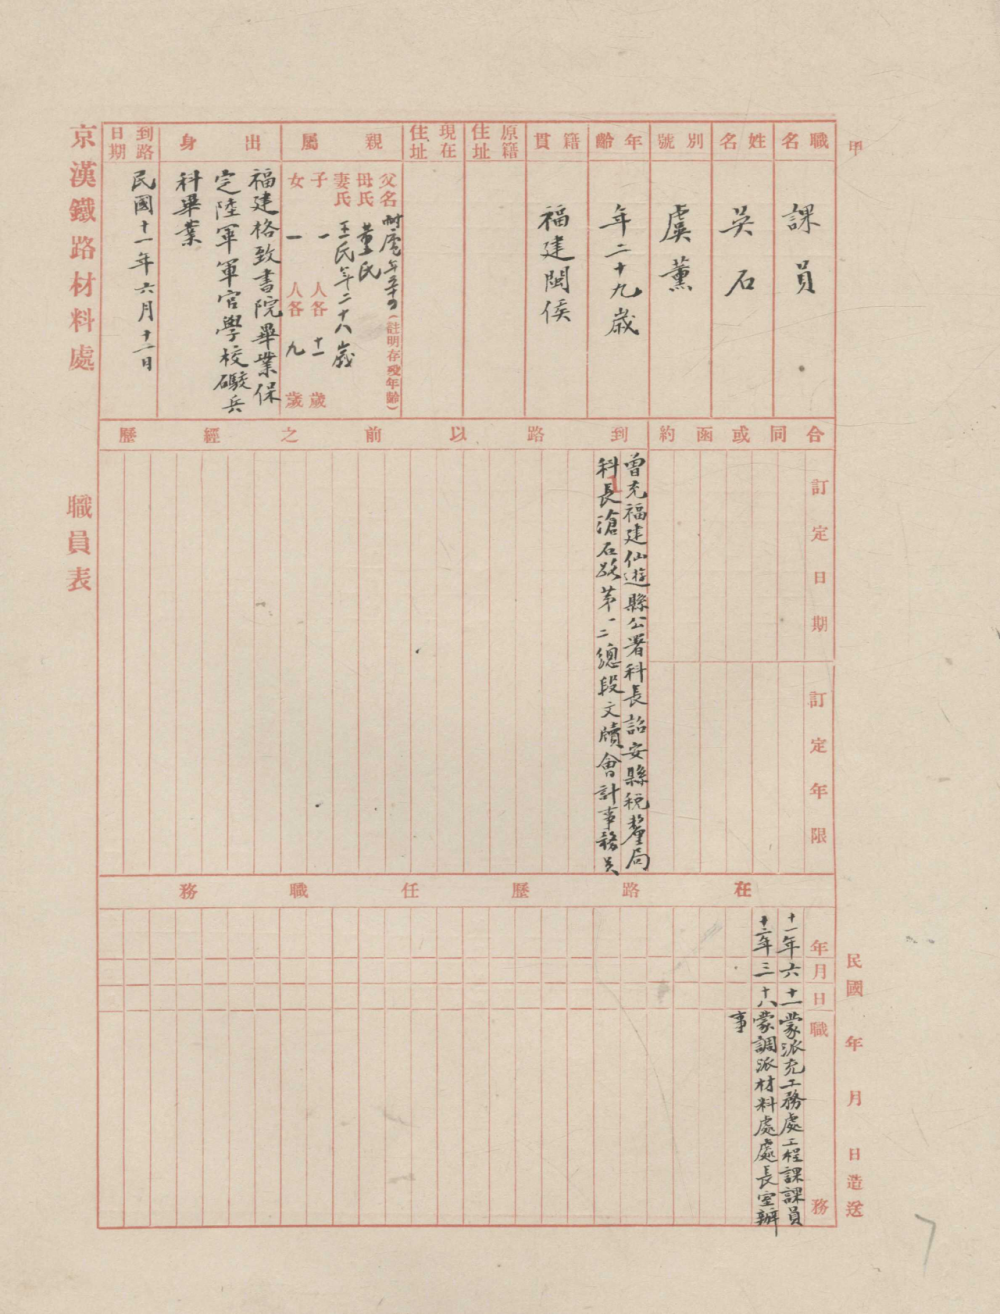 甲
職名
課員
姓名
吳石
別號
虞薰
年齡
年二十九歲
籍貫
福建閩侯
原籍住址
現在住址
親屬
父名 耐 年五十 (註明存歿年齡)
母氏 董氏
妻氏 王氏年二十八歲
子 一 人各 十一 歲
女 一 人各 九 歲
出身
福建格致書院畢業保
定陸軍軍官學校礮兵
科畢業
到路日期
民國十一年六月十一日
合同或函約
訂定日期
訂定年限
到路以前之經歷
曾充福建仙遊縣公署科長詔安縣稅釐局
科長滄石路第一二總段文牘會計事務員
1
在路歷任職務
年月日職務
十一年六 十一 蒙派充工務處工程課課員
十二年三 十八 蒙調派材料處處長室辦
事
京漢鐵路材料處 職員表
民國 年 月 日造送
7